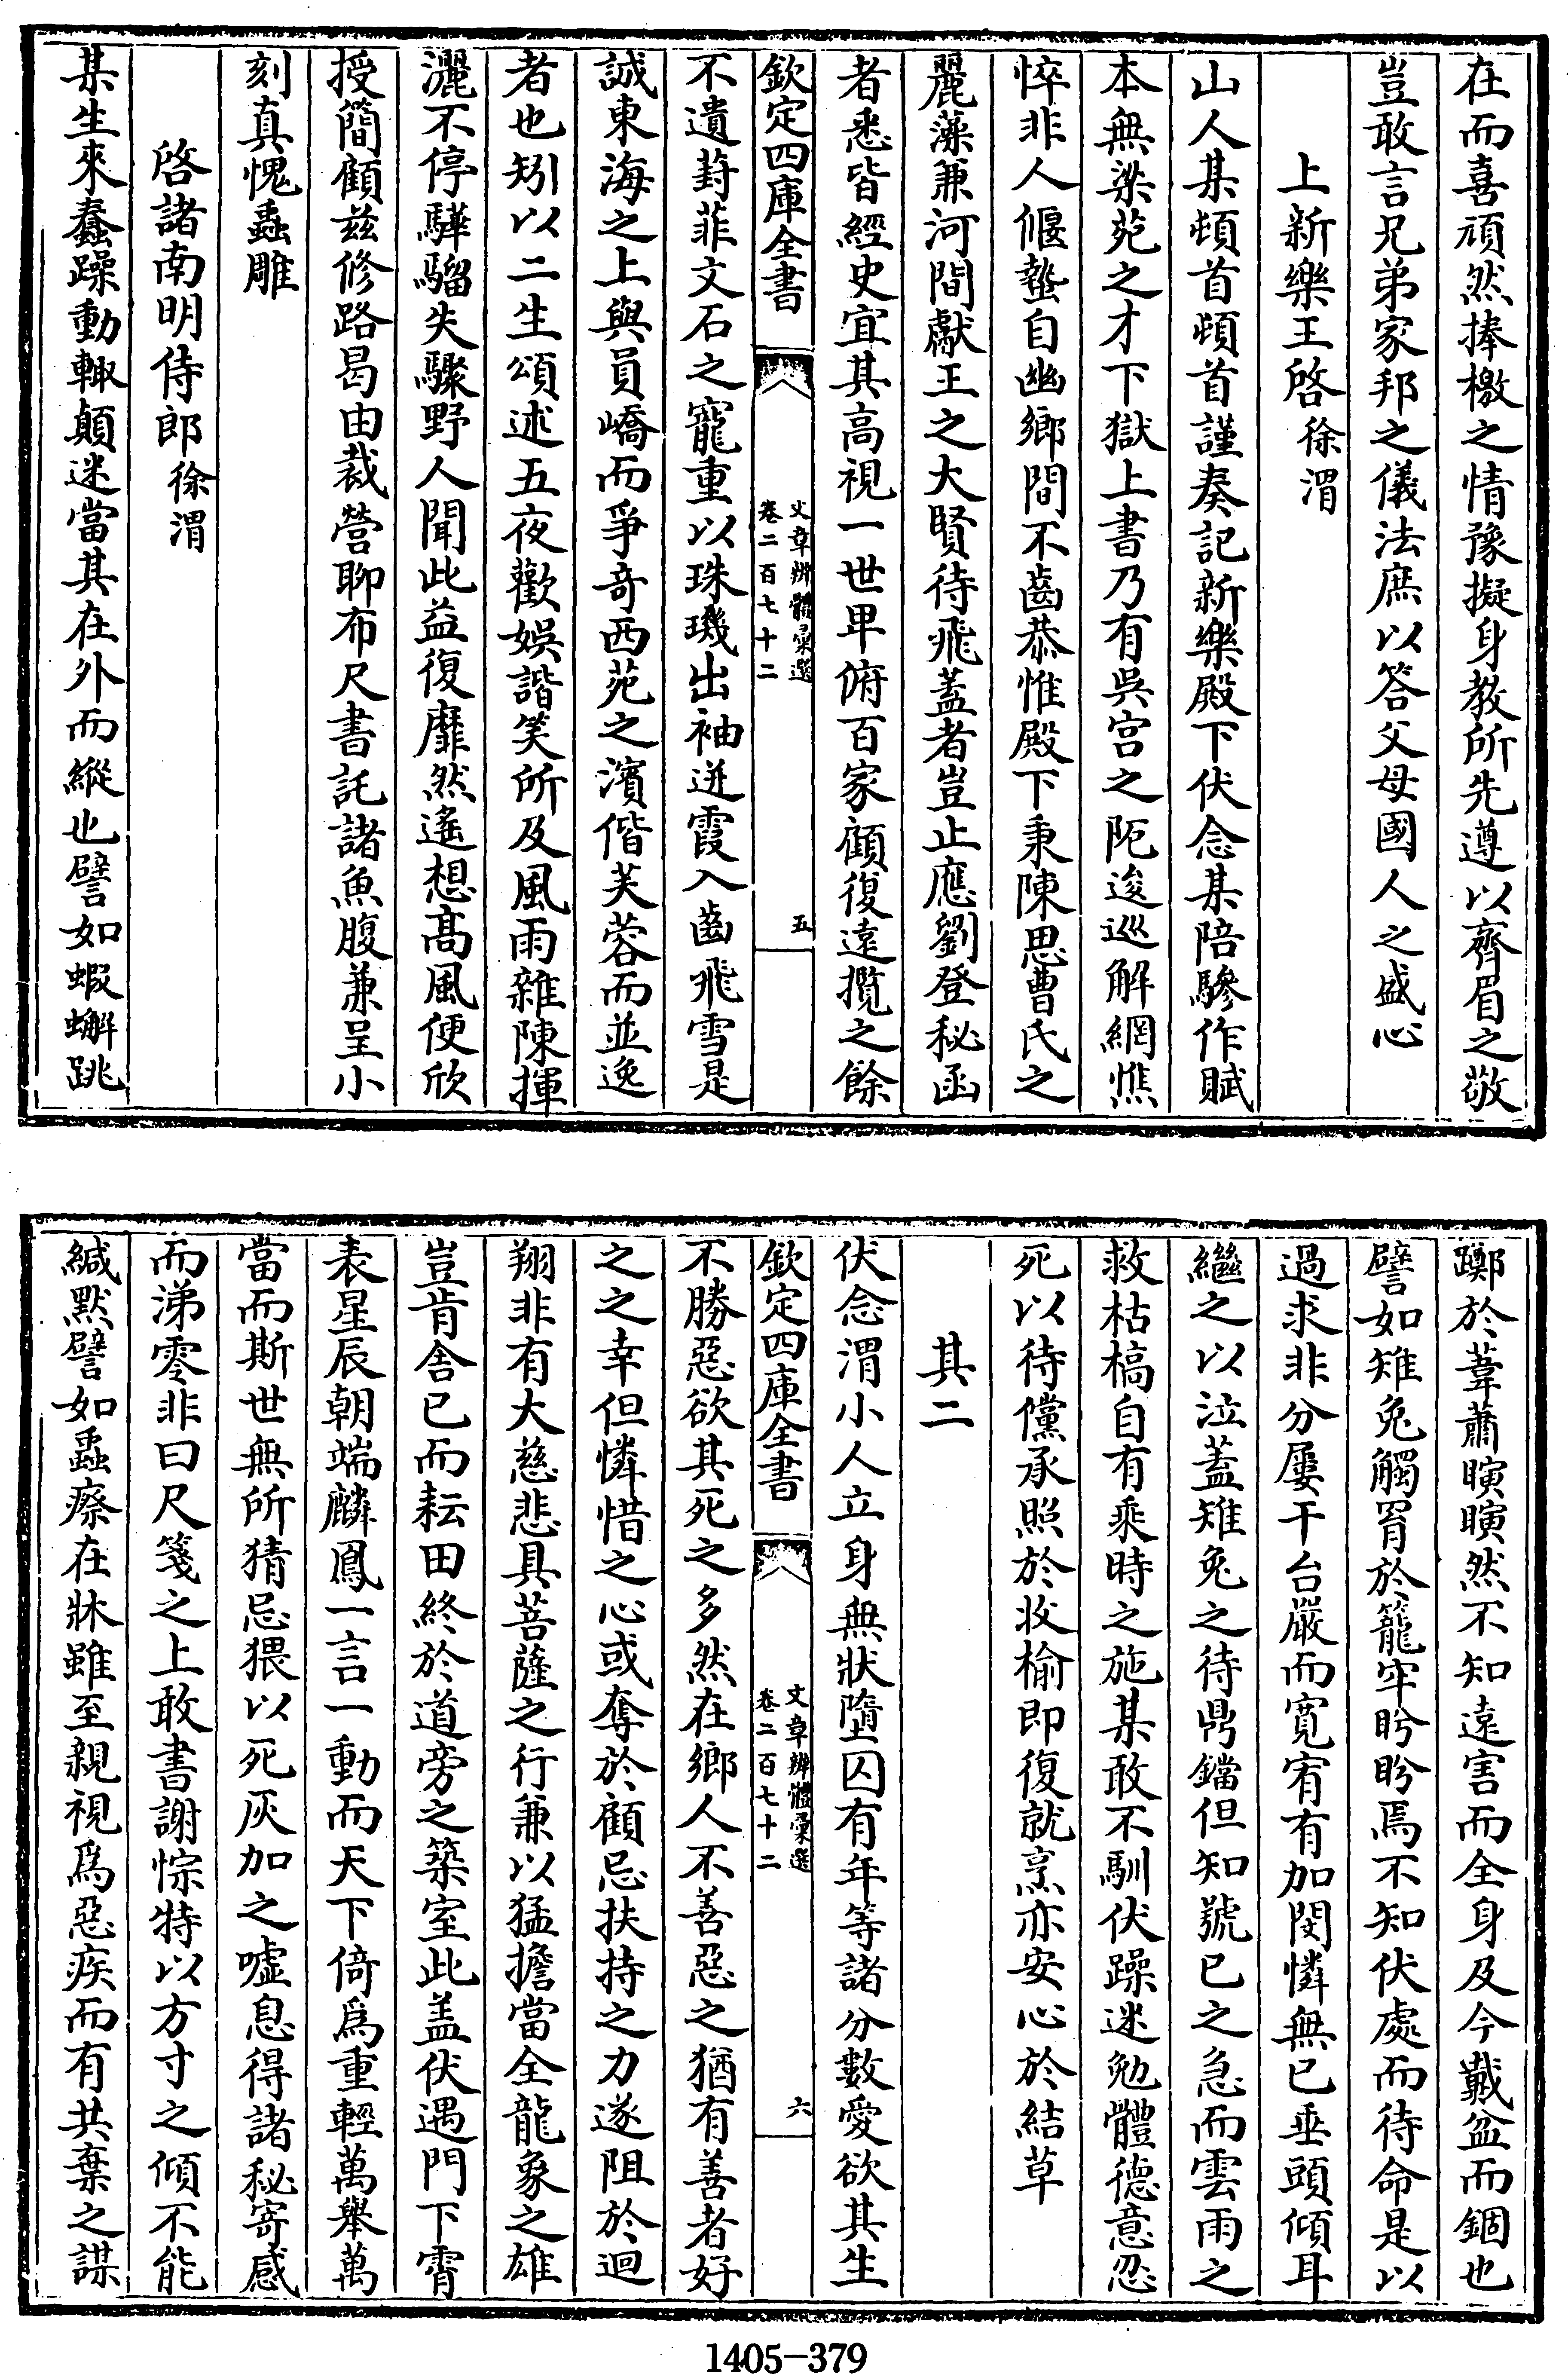 在而喜頑然捧檄之情豫擬身教所先遵以齊眉之敬
豈敢言兄弟家邦之儀法庶以答父母國人之盛心
上新樂王啓徐渭
山人某頓首頓首謹奏記新樂殿下伏念某陪驂作賦
本無梁苑之才下獄上書乃有吳宮之阨逡巡解網憔
悴非人偃蟄自幽鄉間不齒恭惟殿下秉陳思曹氏之
麗藻兼河間獻王之大賢待飛蓋者豈止應劉登秘函
者悉皆經史宜其高視一世卑俯百家顧復遠攬之餘
欽定四庫全書
文章辨體彙選
卷二百七十二
五
不遺葑菲文石之寵重以珠璣出袖迸霞入齒飛雪是
誠東海之上與員嶠而爭奇西苑之濱偕芙蓉而並逸
者也矧以二生頌述五夜歡娛諧笑所及風雨雜陳揮
灑不停驊騮失驟野人聞此益復靡然遙想高風便欣
授簡顧兹修路曷由裁營聊布尺書託諸魚腹兼呈小
刻真愧蟲雕
啓諸南明侍郎徐渭
某生來蠢躁動輙顛迷當其在外而縱也譬如蝦蠏跳
躑於葦蕭瞑瞑然不知遠害而全身及今戴盆而錮也
譬如雉兔觸罥於籠牢盻盻焉不知伏處而待命是以
過求非分屢干台嚴而寬宥有加閔憐無已垂頭傾耳
繼之以泣蓋雉兔之待鼎鐺但知號已之急而雲雨之
救枯槁自有乘時之施某敢不馴伏躁迷勉體德意忍
死以待儻承照於收榆即復就烹亦安心於結草
其二
伏念渭小人立身無狀墮囚有年等諸分數愛欲其生
欽定四庫全書
文章辨體彙選
卷二百七十二
六
不勝惡欲其死之多然在鄉人不善惡之猶有善者好
之之幸但憐惜之心或奪於顧忌扶持之力遂阻於迴
翔非有大慈悲具菩薩之行兼以猛擔當全龍象之雄
豈肯舍已而耘田終於道旁之築室此盖伏遇門下霄
表星辰朝端麟鳳一言一動而天下倚爲重輕萬舉萬
當而斯世無所猜忌猥以死灰加之噓息得諸秘寄感
而涕零非曰尺箋之上敢書謝悰特以方寸之傾不能
緘默譬如蟲瘵在牀雖至親視爲惡疾而有共棄之謀
1405-379